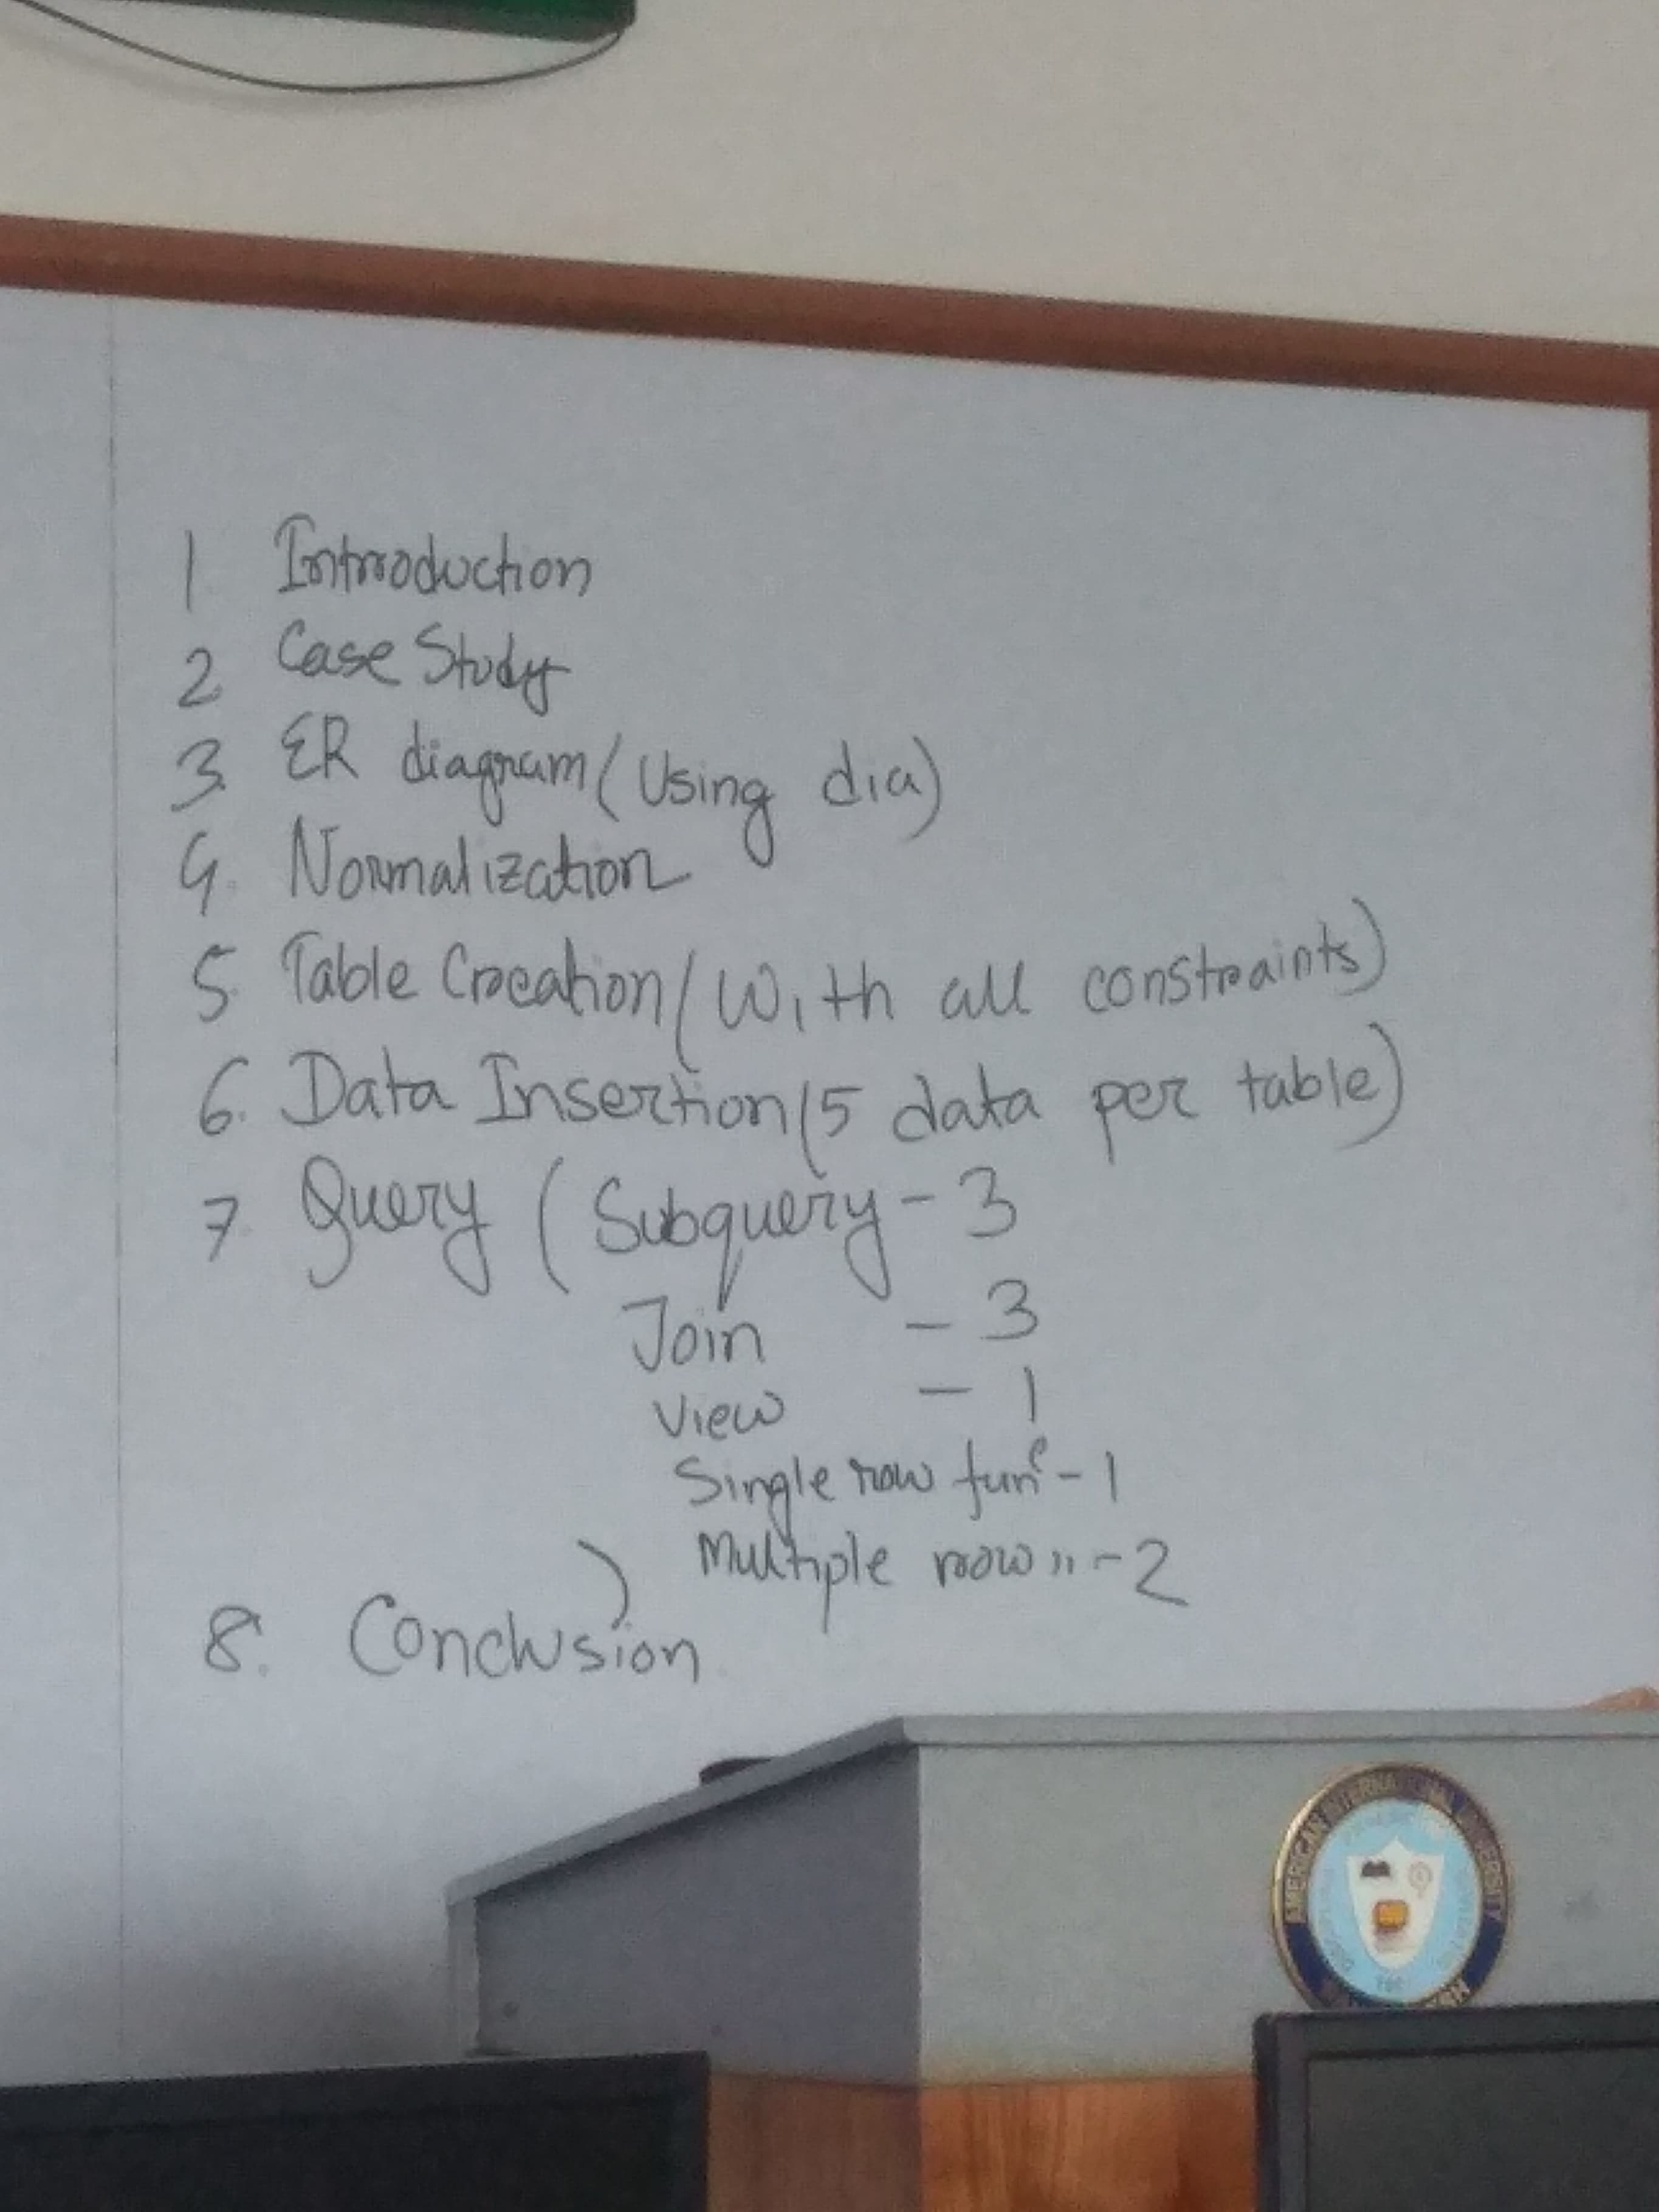 1. Introduction
2. Case Study
3. ER diagram (Using dia)
4. Normalization
5. Table Creation (With all constraints)
6. Data Insertion (5 data per table)
7. Query (Subquery - 3
Join - 3
View - 1
Single row funⁿ - 1
Multiple row " - 2
)
8. Conclusion
AMERICAN INTERNATIONAL UNIVERSITY